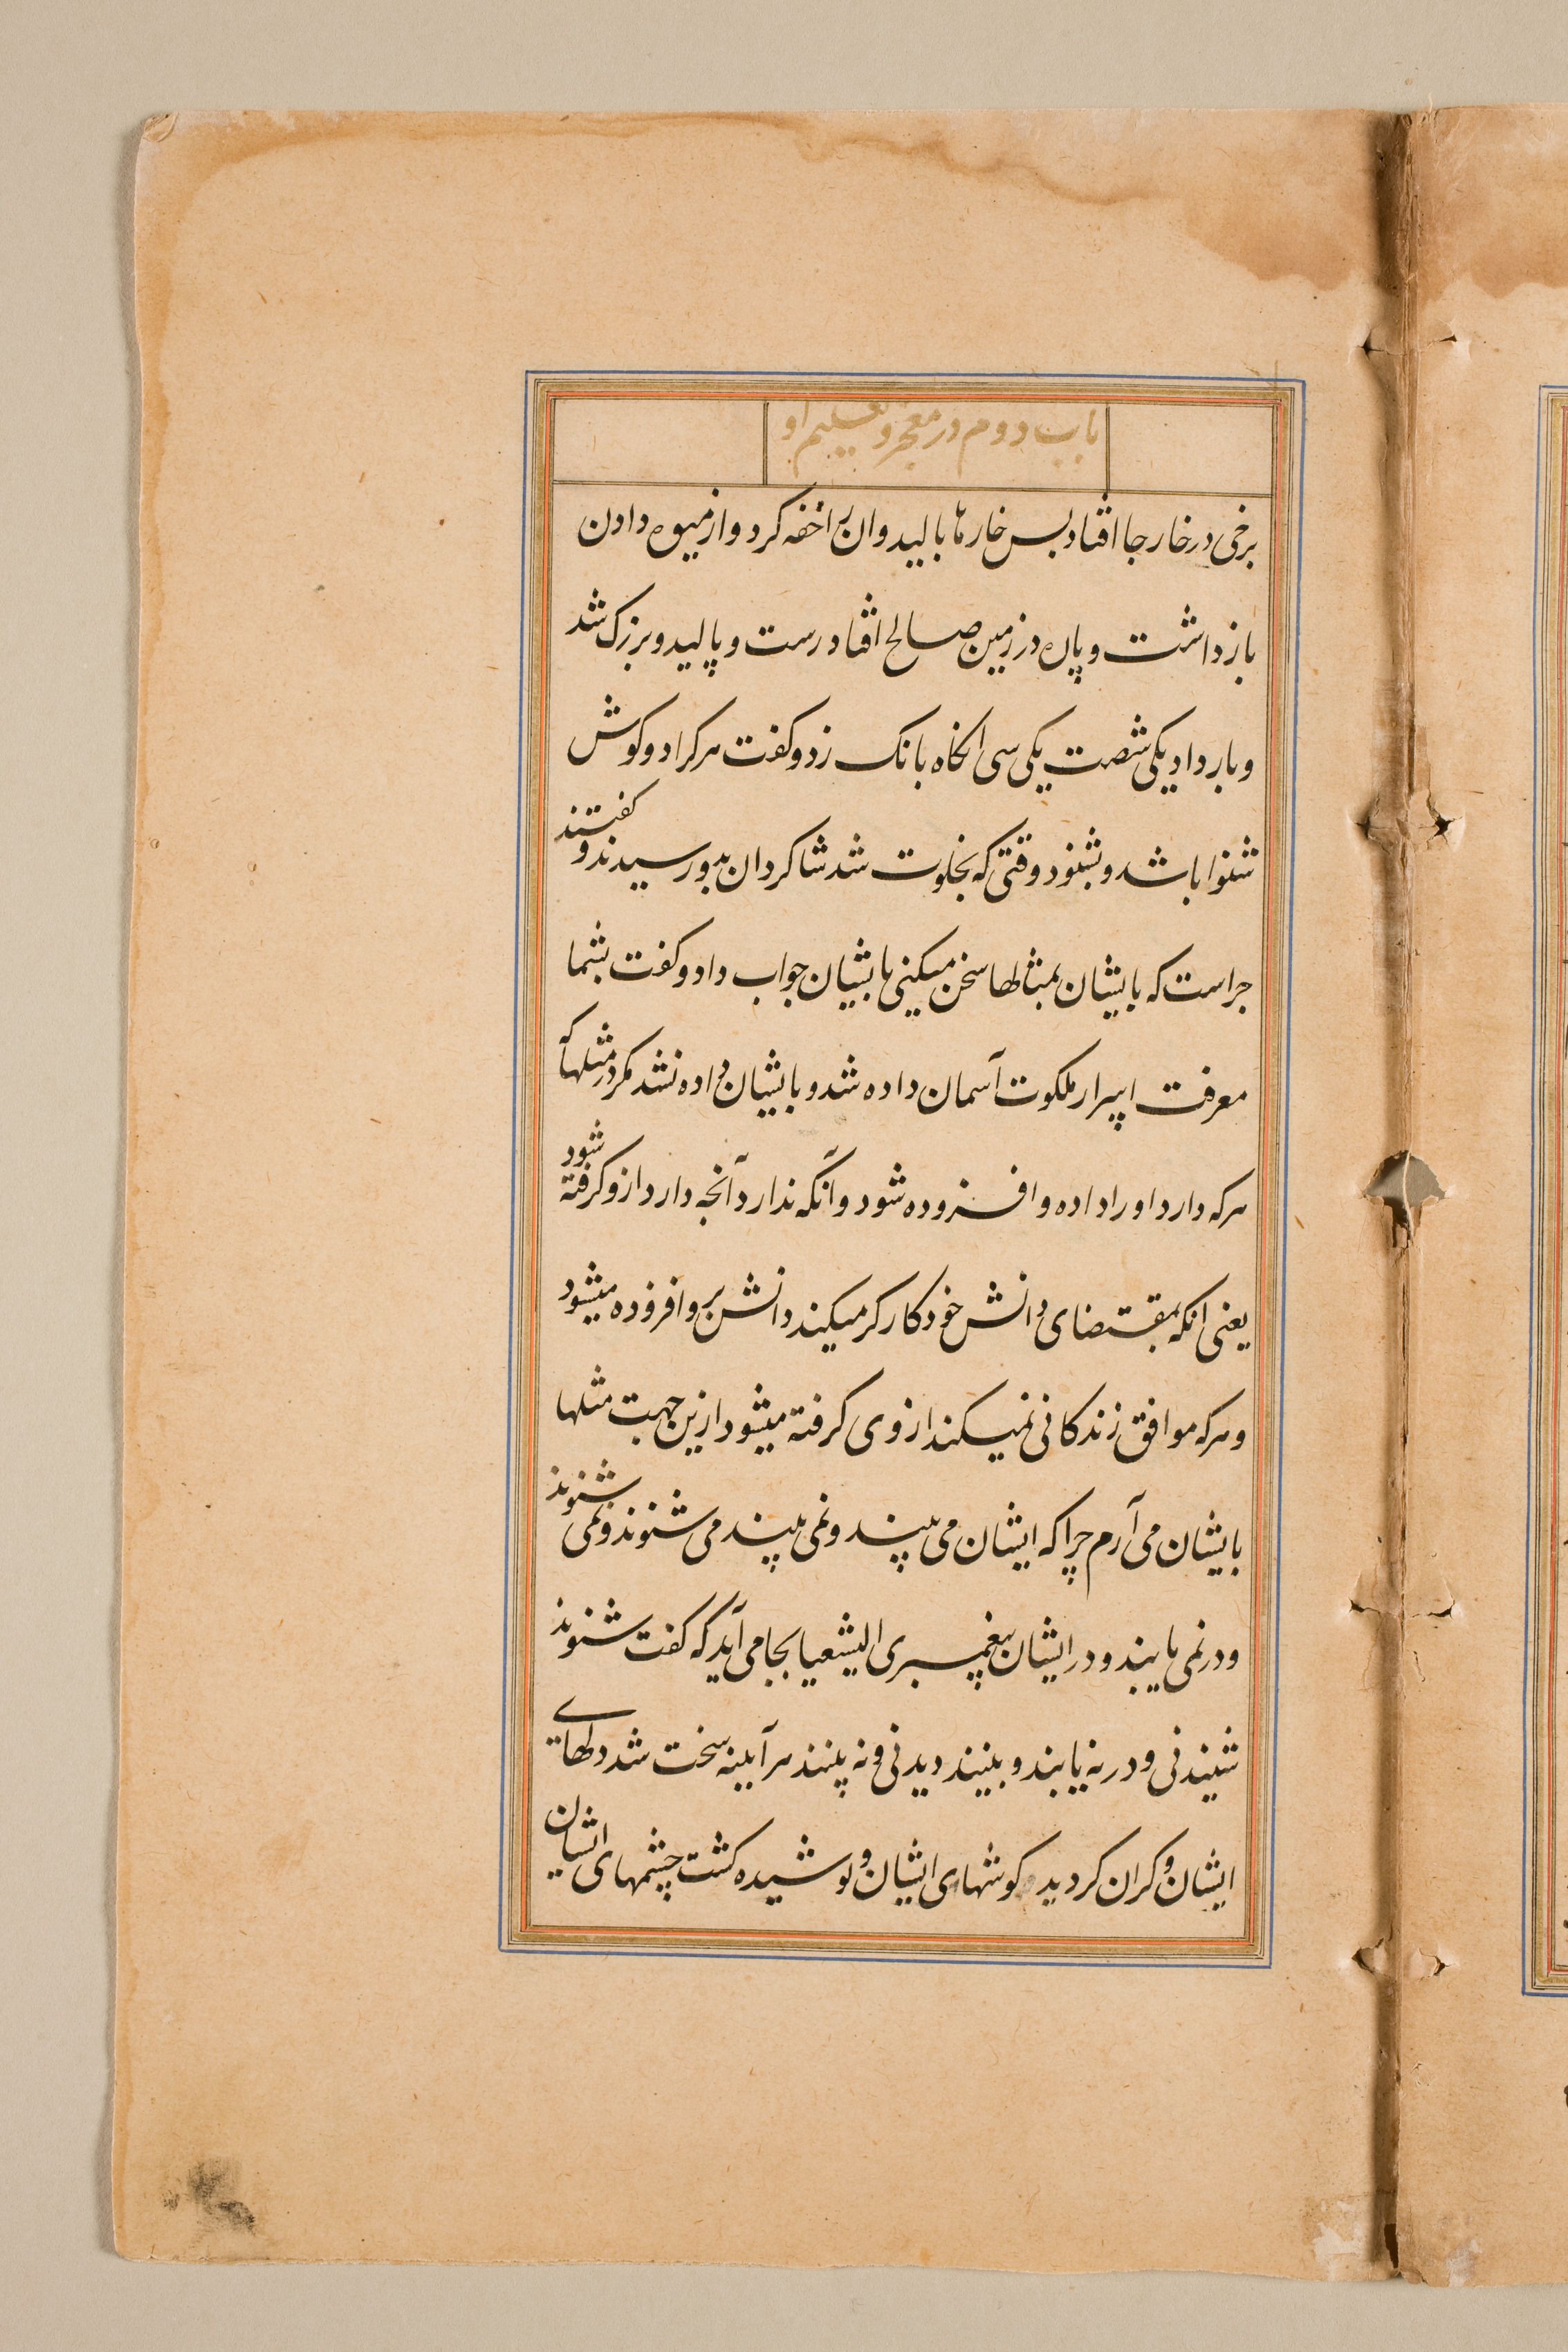 باب دوم در معجز و تعلیم او
برخی در خارجا افتاد بس خارها بالید وان را خفه کرد و از میوه دادن
بازداشت و پاره در زمین صالح افتاد رست و پالید و بزرک شد
و بار داد یکی شصت یکی سی انکاه بانک زد و کفت هر کرا دو کوش
شنوا باشد و بشنود وقتی که بخلوت شد شاکردان بدو رسیدند و کفتند
جراست که بایشان بمثالها سخن میکنی بایشان جواب داد و کفت بشما
معرفت اسرار ملکوت آسمان داده شد و بایشان داده نشد مکر در مثلها که
هر که دارد او را داده و افزوده شود و آنکه ندارد آنجه دارد ازو کرفته شود
یعنی انکه بمقتضای دانش خود کار کر میکند دانش برو افزوده میشود
و هر که موافق زندکانی نمیکند از وی کرفته میشود ازین جهت مثلها
بایشان می آرم چرا که ایشان می بینند و نمی بینند می شنوند و نمی شنوند
و در نمی یابند و در ایشان پیغمبری الیشعیا بجا می آید که کفت شنوند
شنیدنی و در نه یابند و بینند دیدنی و نه بینند هر آیینه سخت شد دلهای
ایشان و کران کردید کوشهای ایشان و پوشیده کشت چشمهای ایشان